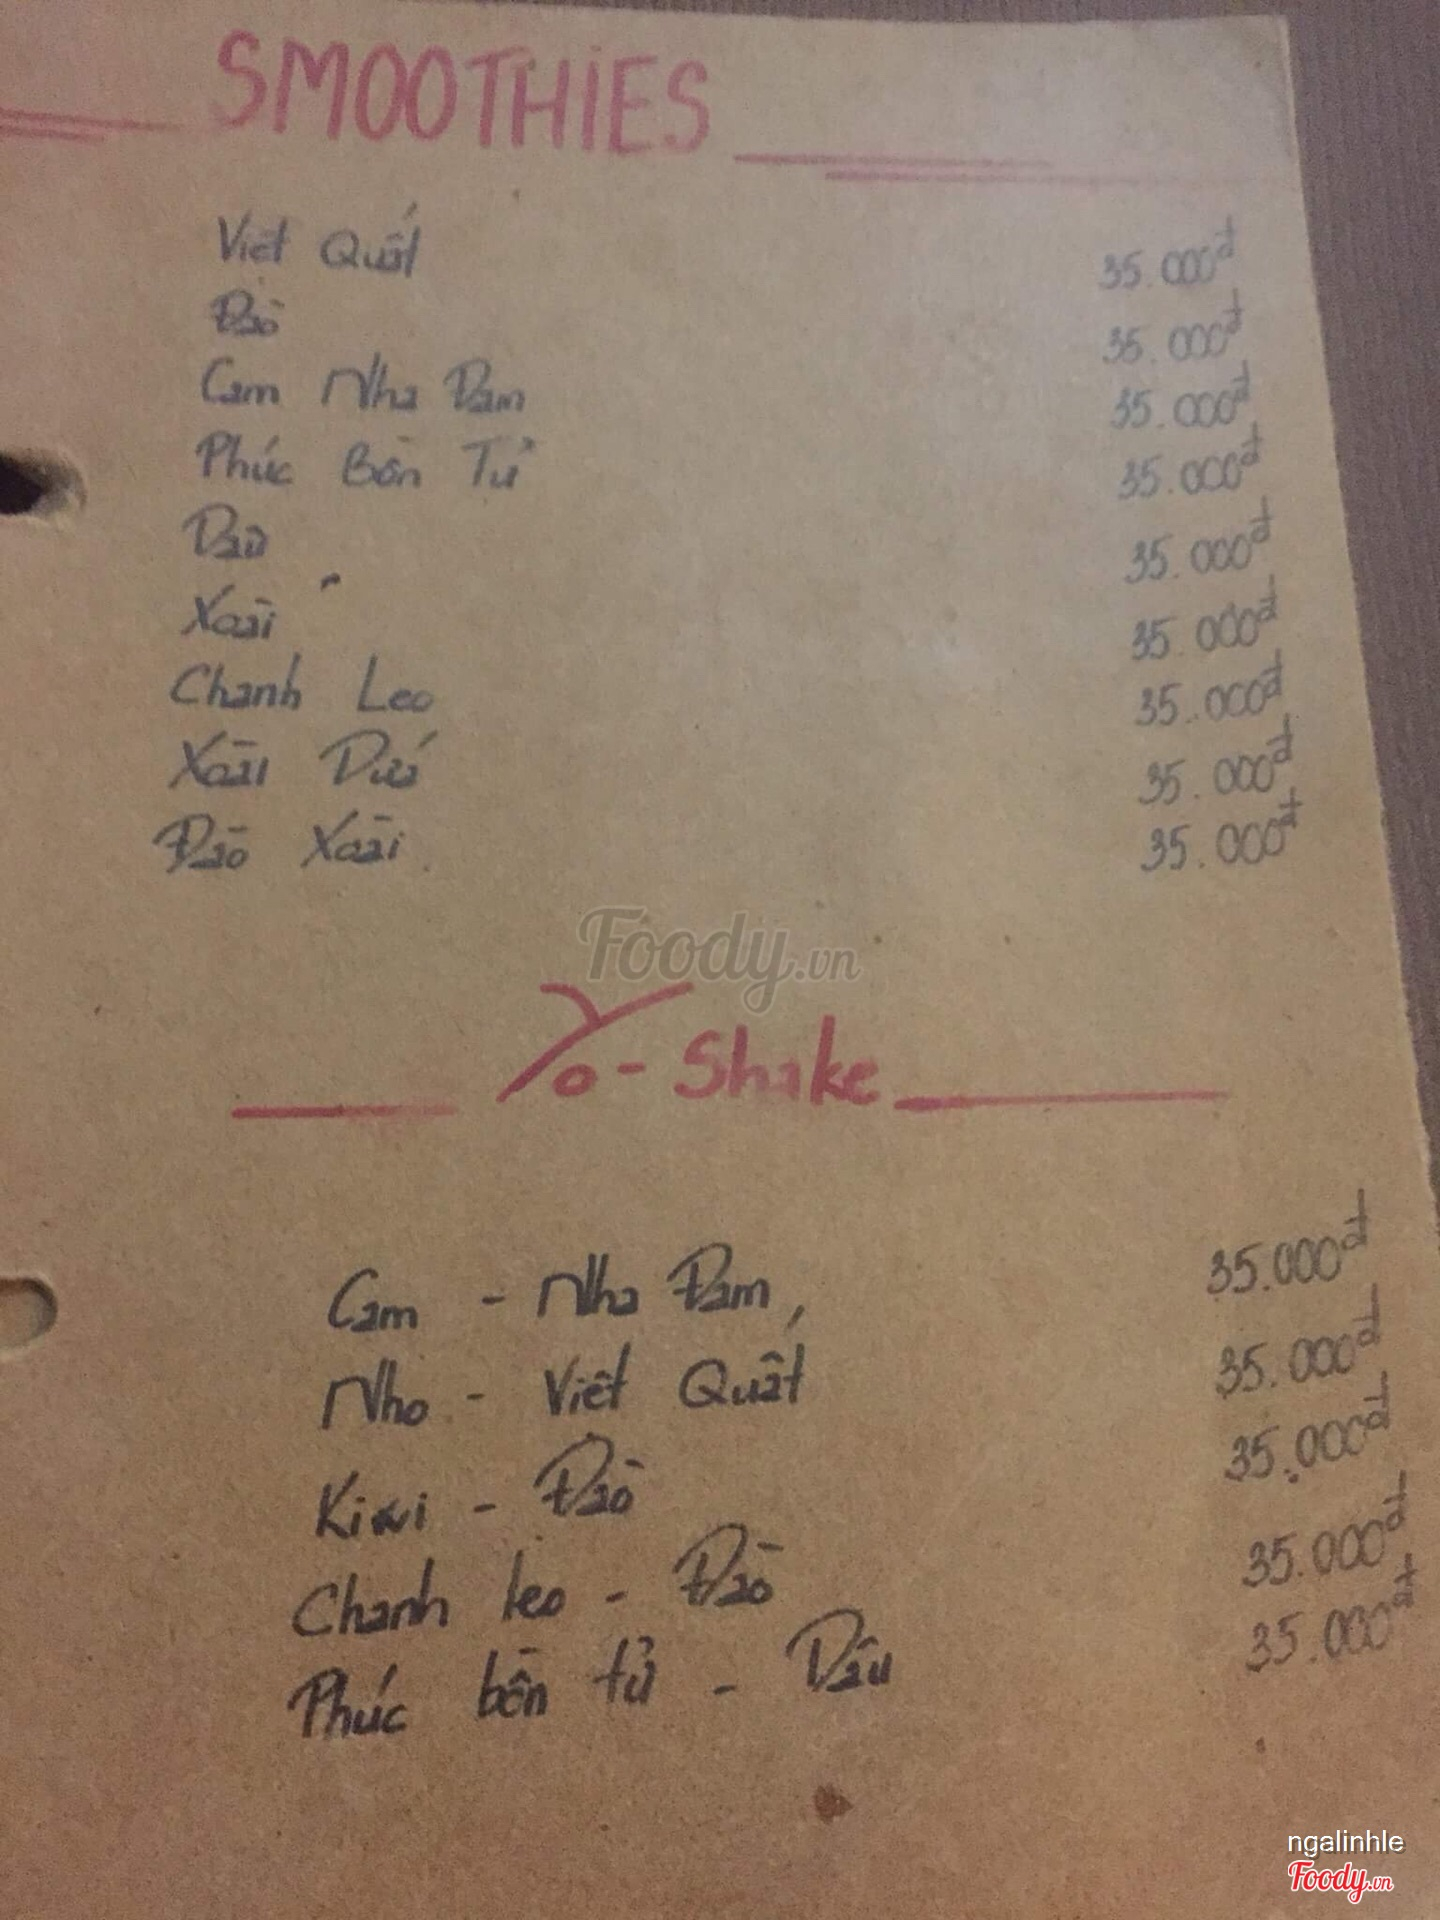 SMOOTHIES
Việt Quất 35.000đ
Đào 35.000đ
Cam Nha Đam 35.000đ
Phúc Bồn Tử 35.000đ
Dâu 35.000đ
Xoài 35.000đ
Chanh Leo 35.000đ
Xoài Dứa 35.000đ
Đào Xoài 35.000đ
Foody.vn
Yo-Shake
Cam - Nha Đam 35.000đ
Nho - Việt Quất 35.000đ
Kiwi - Đào 35.000đ
Chanh leo - Đào 35.000đ
Phúc bồn tử - Dâu 35.000đ
ngalinhle
Foody.vn